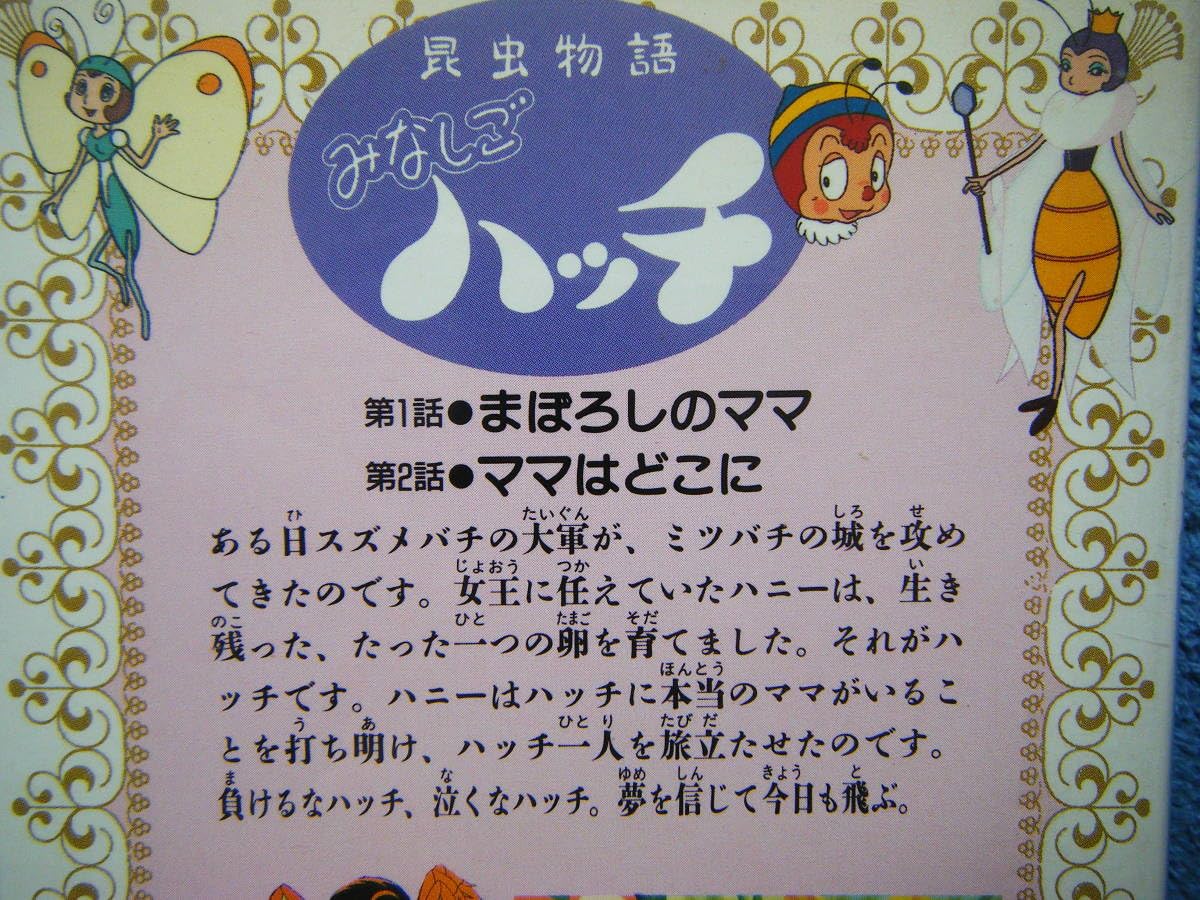 昆虫物語
みなしご
ハッチ
第1話●まぼろしのママ
第2話●ママはどこに
ある日スズメバチの大軍が、ミツバチの城を攻め
てきたのです。女王に任えていたハニーは、生き
残った、たった一つの卵を育てました。それがハ
ッチです。ハニーはハッチに本当のママがいるこ
とを打ち明け、ハッチ一人を旅立たせたのです。
負けるなハッチ、泣くなハッチ。夢を信じて今日も飛ぶ。